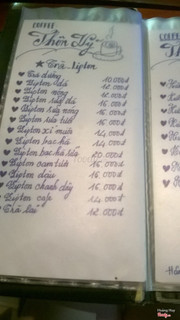 COFFEE
Thôn Vỹ
★ Trà lipton
♥ Trà đường 10.000đ
♥ Lipton đá 12.000đ
♥ Lipton nóng 12.000đ
♥ Lipton sữa đá 16.000đ
♥ Lipton sữa nóng 16.000đ
♥ Lipton sữa tươi 16.000đ
♥ Lipton xí muội 14.000đ
♥ Lipton bạc hà 14.000đ
♥ Lipton bạc hà sữa 20.000đ
♥ Lipton cam tươi 16.000đ
♥ Lipton dâu 16.000đ
♥ Lipton chanh dây 16.000đ
♥ Lipton cafe 14.000đ
♥ 12.000đ